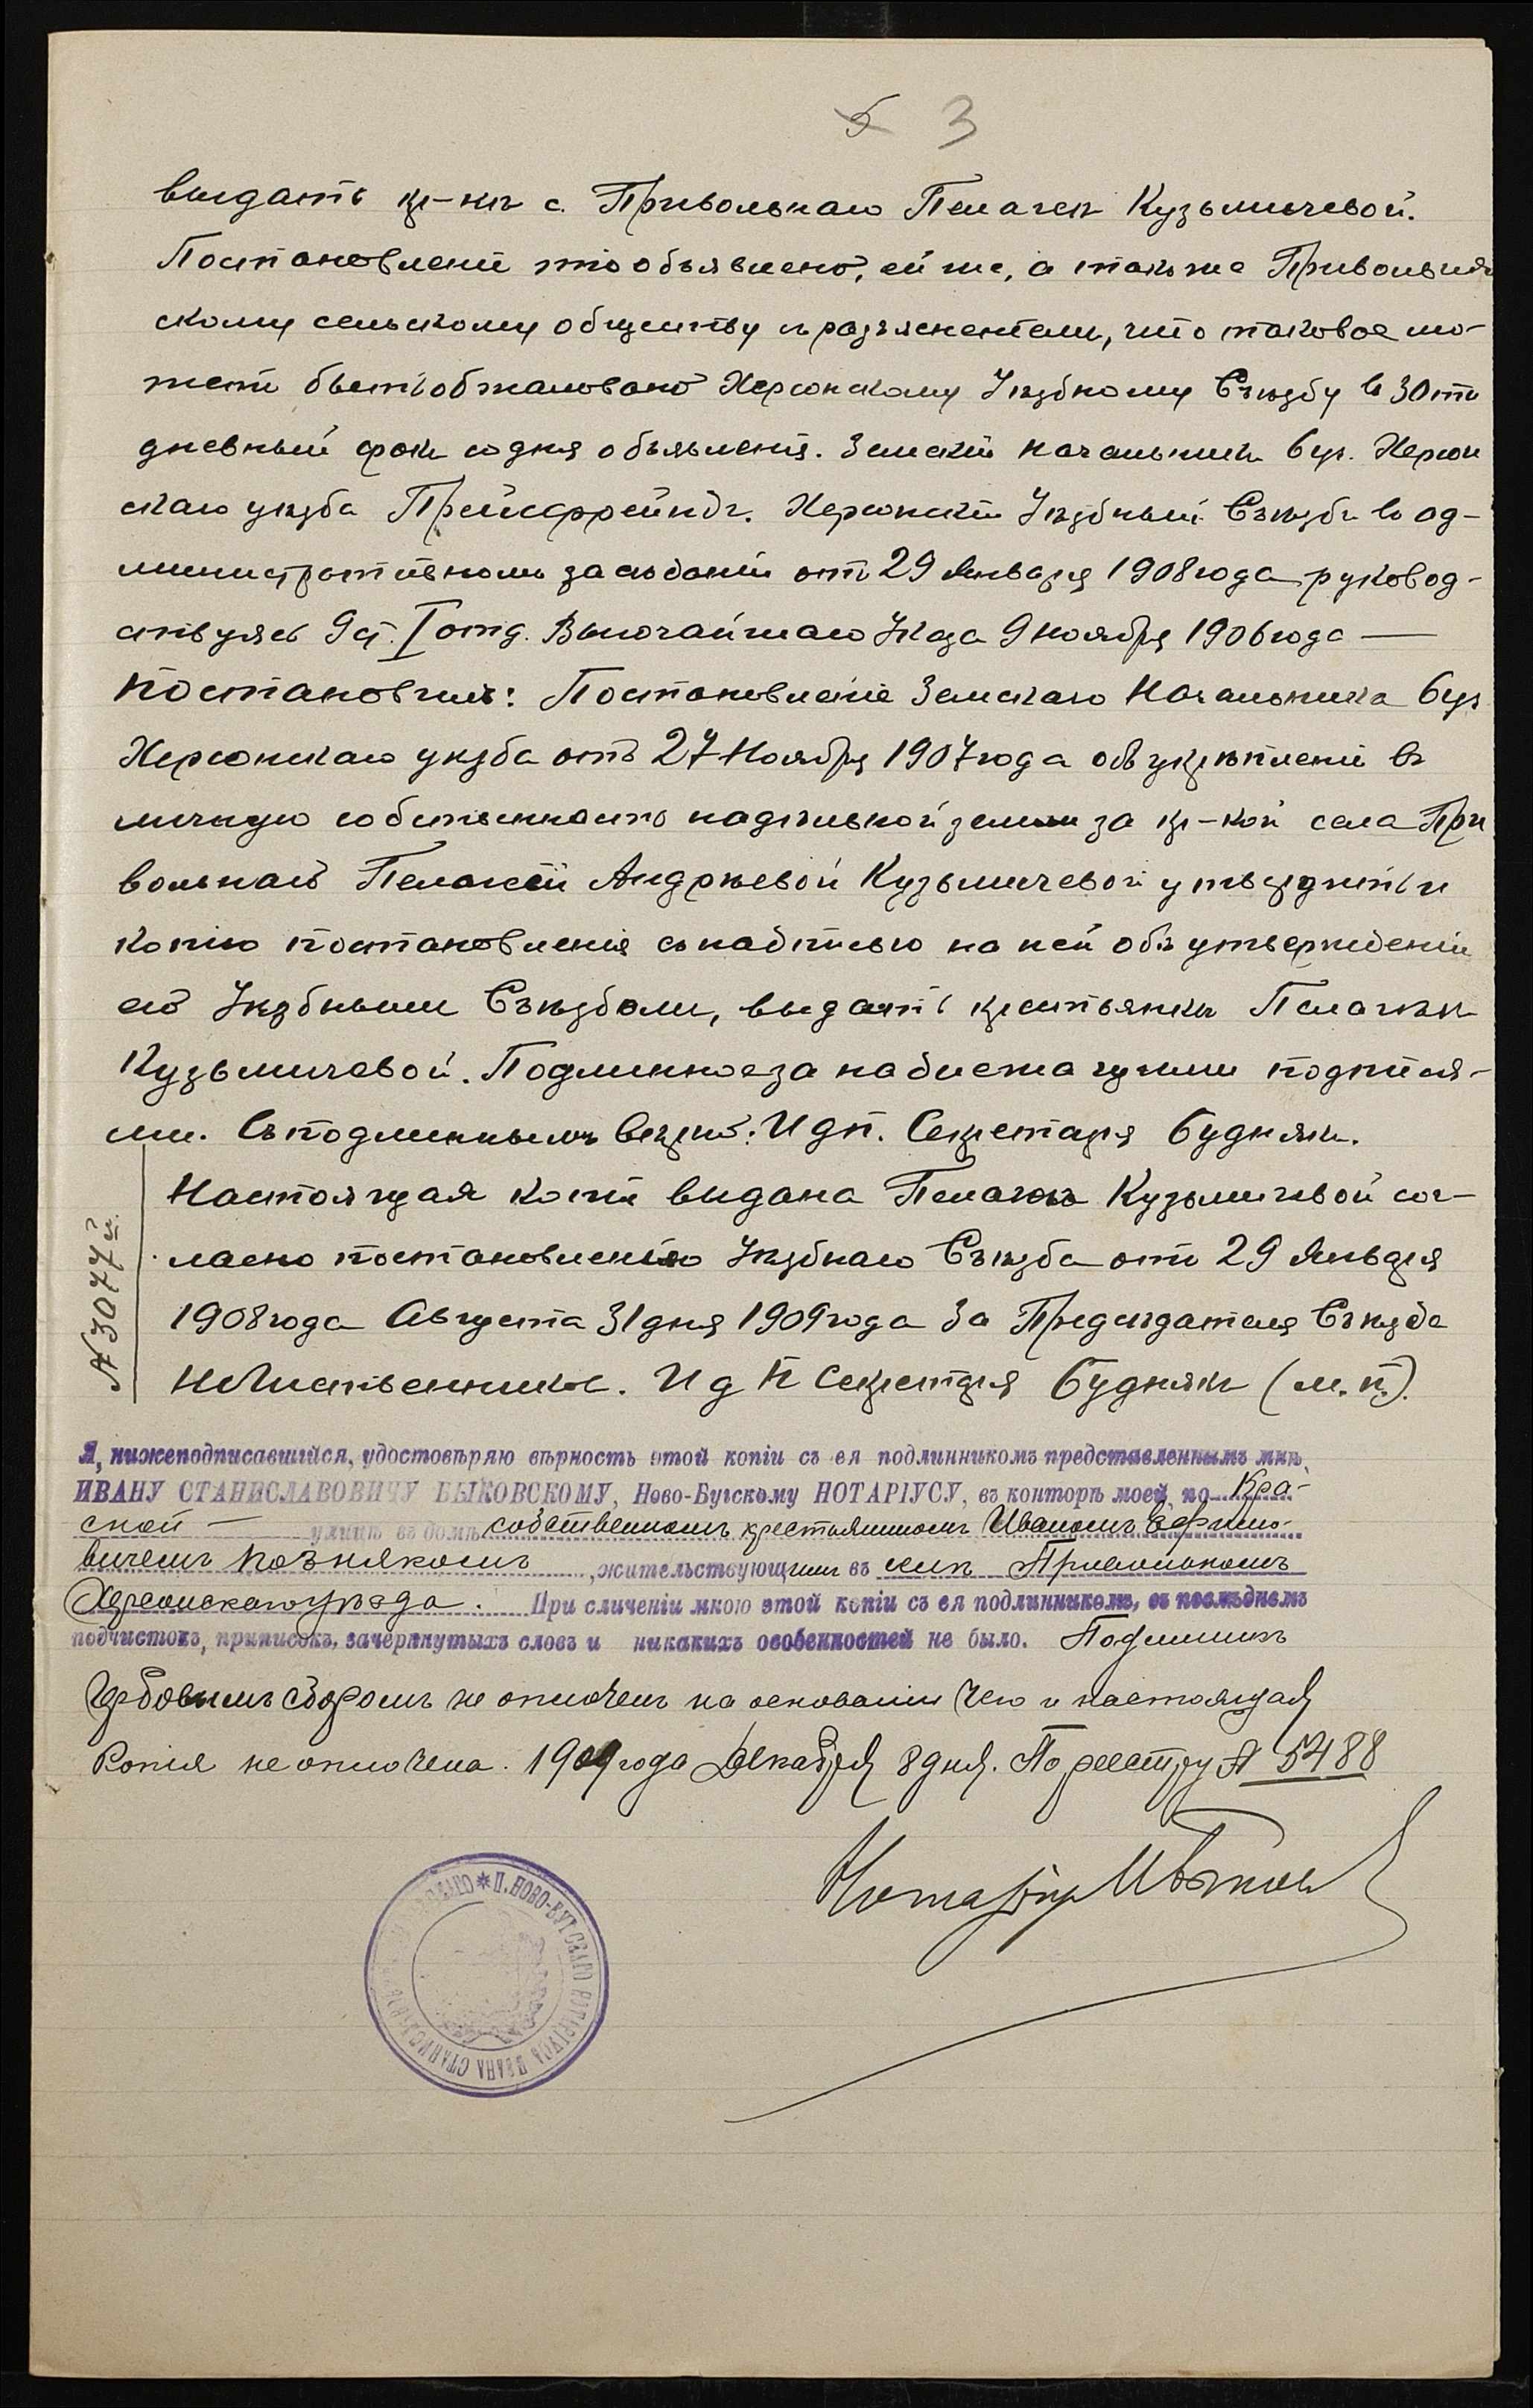 5 3
выдать кр-кѣ с. Привольнаго Пелагеѣ Кузьмичевой.
Постановленіе это объявлено, ей же, а также Привольнян
скому сельскому обществу съ разъясненіемъ, что таковое мо-
жетъ быть обжаловано Херсонскому Уѣздному Съѣзду въ 30ти
дневный срокъ со дня объявленія. Земскій начальникъ 6 уч. Херсон
скаго уѣзда Прейсфрейндъ. Херсонскій Уѣздный Съѣздъ въ ад-
министративномъ засѣданіи отъ 29 Января 1908 года руковод-
ствуясь 9 ст. I отд. Высочайшаго Указа 9 ноября 1906 года —
постановилъ: Постановленіе Земскаго Начальника 6 уч
Херсонскаго уѣзда отъ 27 Ноября 1907 года объ укрѣпленіи въ
личную собственность надѣльной земли за кр-кой села При
вольнаго Пелагеей Андреевой Кузьмичевой утвердить и
копію постановленія съ надписью на ней объ утвержденіи
его Уѣзднымъ Съѣздомъ, выдать крестьянкѣ Пелагеѣ
Кузьмичевой. Подлинное за надлежащими подпися-
ми. Съ подлиннымъ вѣрно: И д п. Секретаря Буднякъ.
Настоящая копія выдана Пелагеѣ Кузьмичевой сог-
ласно постановленію Уѣзднаго Съѣзда отъ 29 Января
1908 года Августа 31 дня 1909 года За Предсѣдателя Съѣзда
Н Листвениковъ. И д п Секретаря Буднякъ (м. п.).
№ 3077й.
Я, нижеподписавшійся, удостовѣряю вѣрность этой копіи съ ея подлинникомъ представленнымъ мнѣ,
ИВАНУ СТАНИСЛАВОВИЧУ БЫКОВСКОМУ, Ново-Бугскому НОТАРІУСУ, въ конторѣ моей, по Кра-
сной — улицѣ въ домѣ собственномъ крестьяниномъ Иваномъ Ефимо-
вичемъ Познякомъ, жительствующимъ въ селѣ Привольномъ
Херсонскаго уѣзда. При сличеніи мною этой копіи съ ея подлинникомъ, въ послѣднемъ
подчистокъ, приписокъ, зачеркнутыхъ словъ и никакихъ особенностей не было. Подлинникъ
Гербовымъ сборомъ не оплоченъ на основаніи чего и настоящая
Копія не оплочена. 1909 года Декабря 8 дня. По реестру № 5488
Нотаріусъ
П. НОВО-БУГСКАГО НОТАРІУСА ИВАНА СТАНИСЛАВОВИЧА